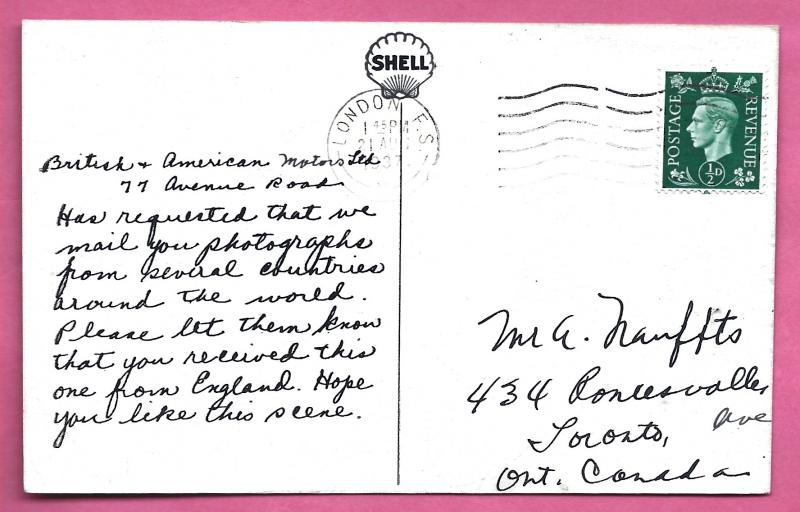 SHELL
LONDON F.S.
1 45 PM
21 AUG
1937
POSTAGE
REVENUE
½D
British & American Motors Ltd
77 Avenue Road
Has requested that we
mail you photographs
from several countries
around the world.
Please let them know
that you received this
one from England. Hope
you like this scene.
Mr A. Nauffts
434 Roncesvalles
Ave
Toronto,
Ont. Canada